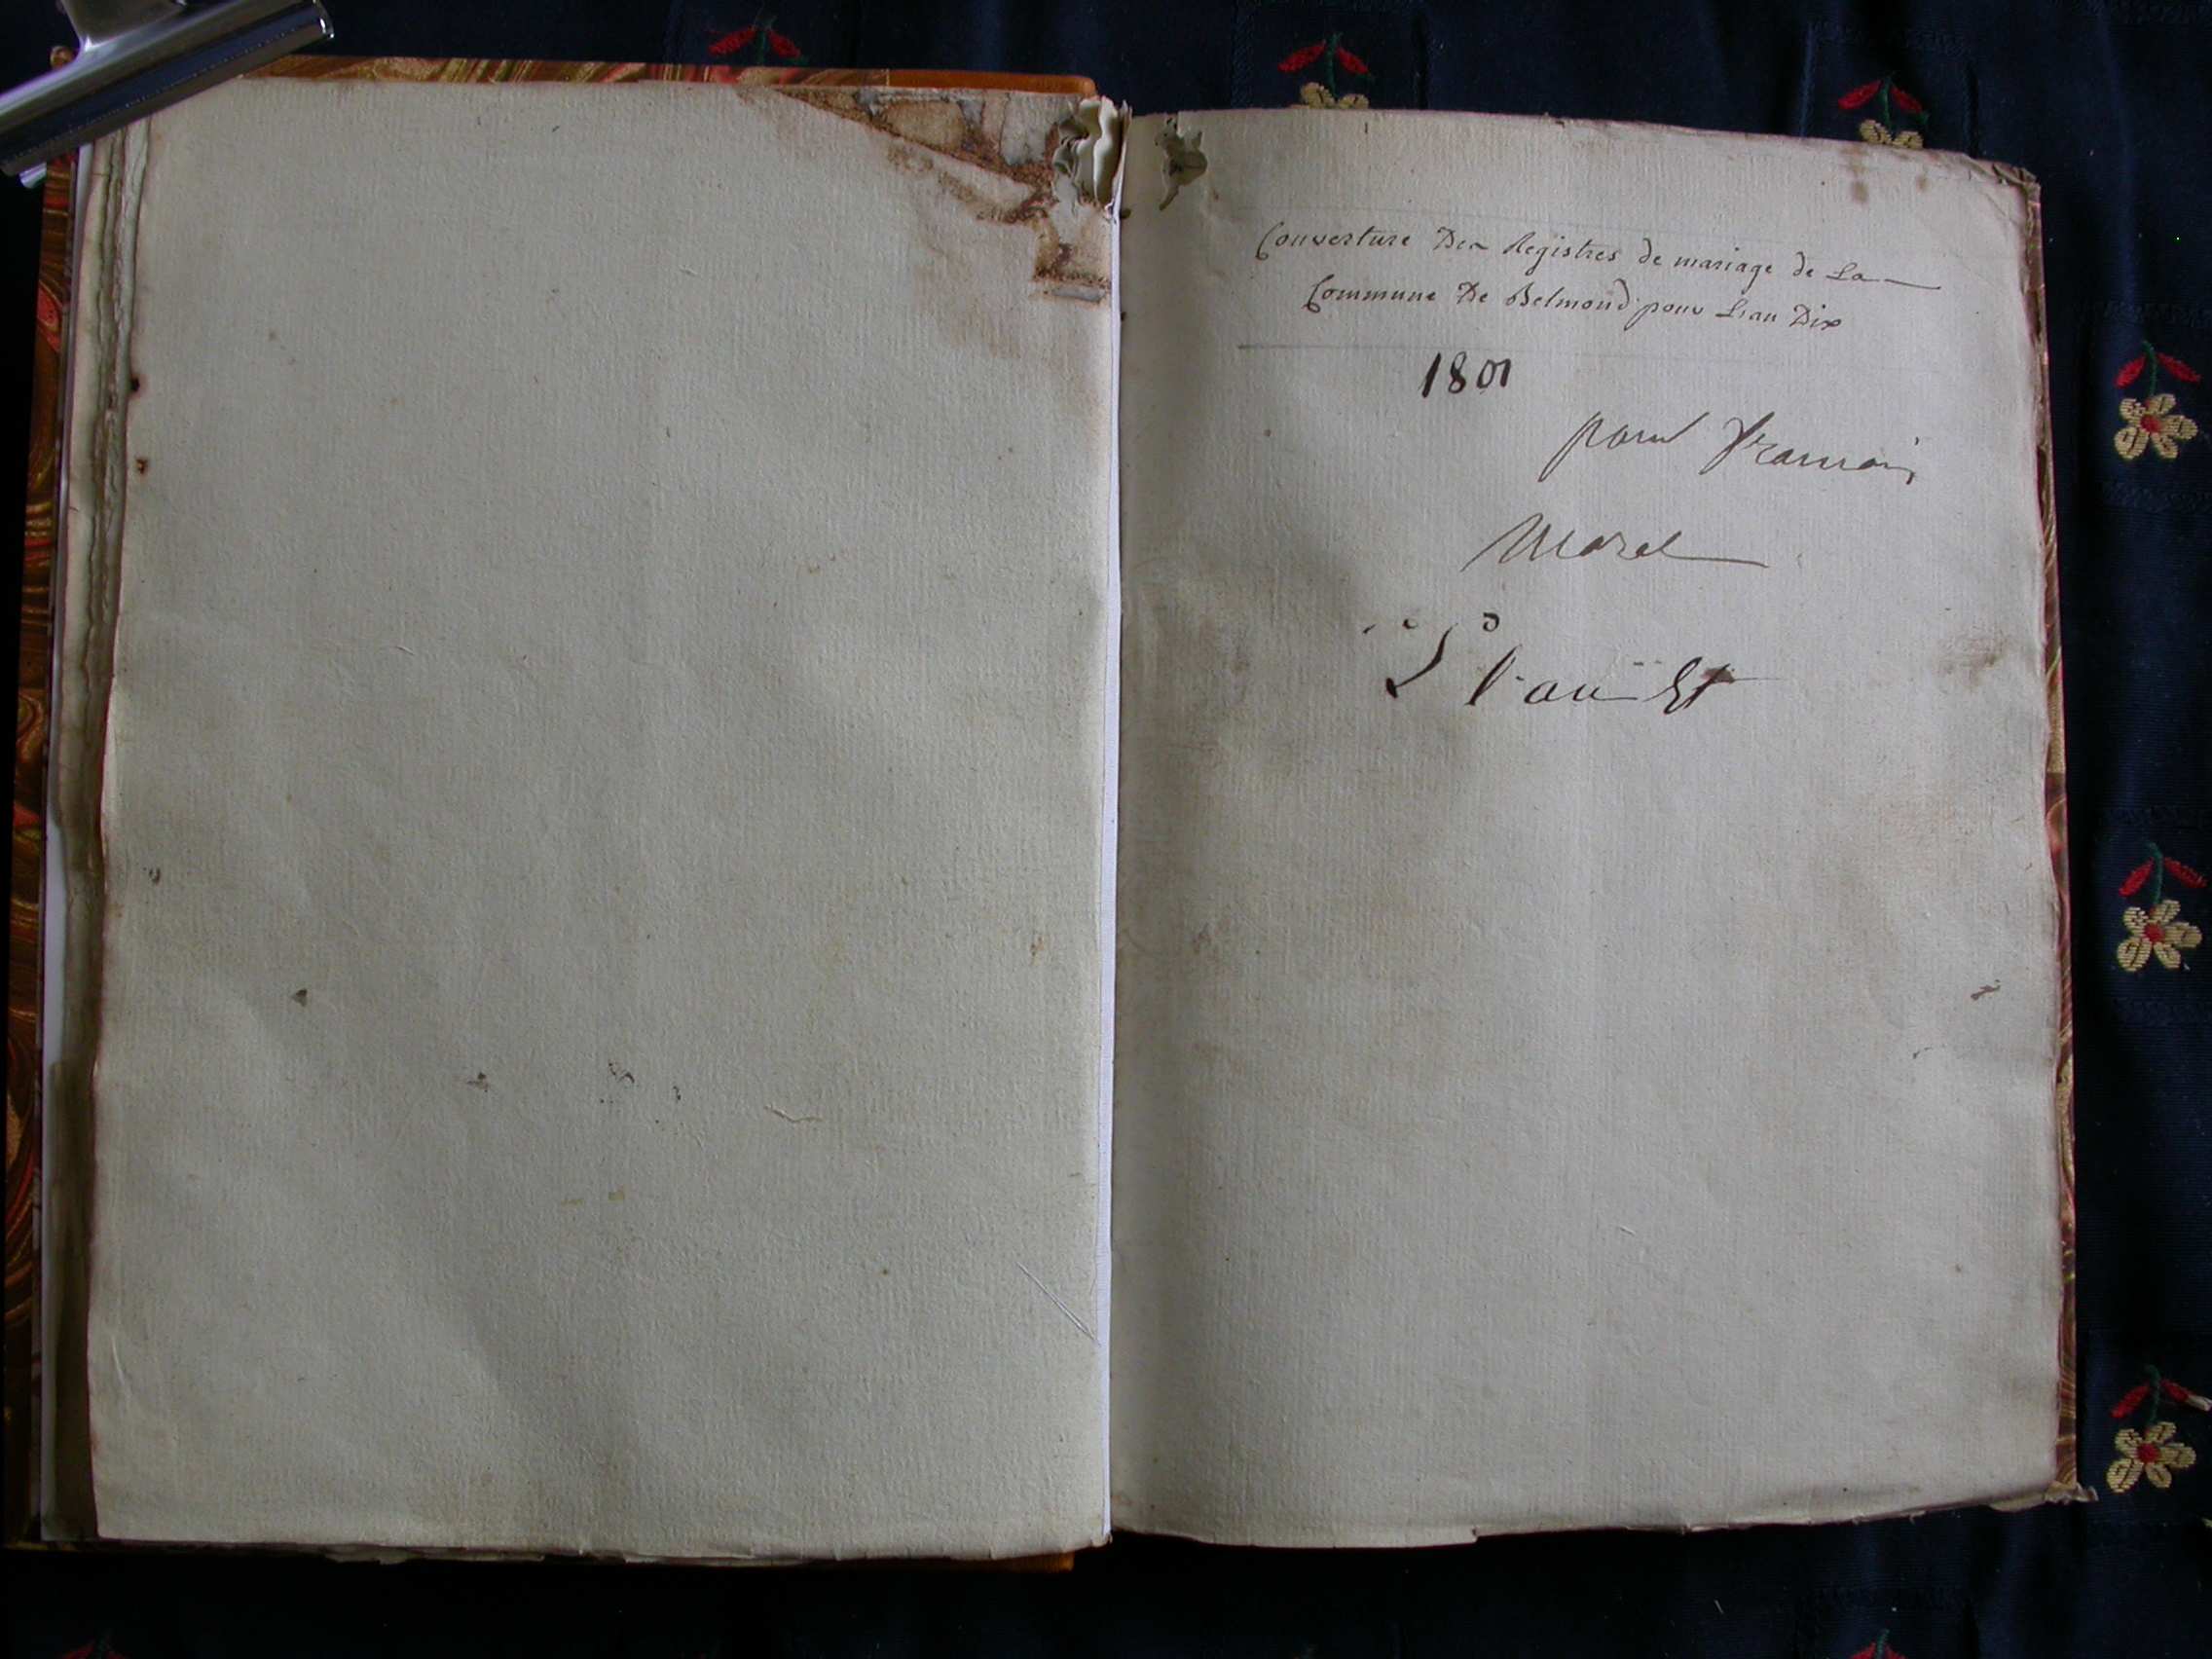 Couverture Des Registres de mariage de La
Commune De Belmond pour L'an Dix
1801
pour francois
Morel